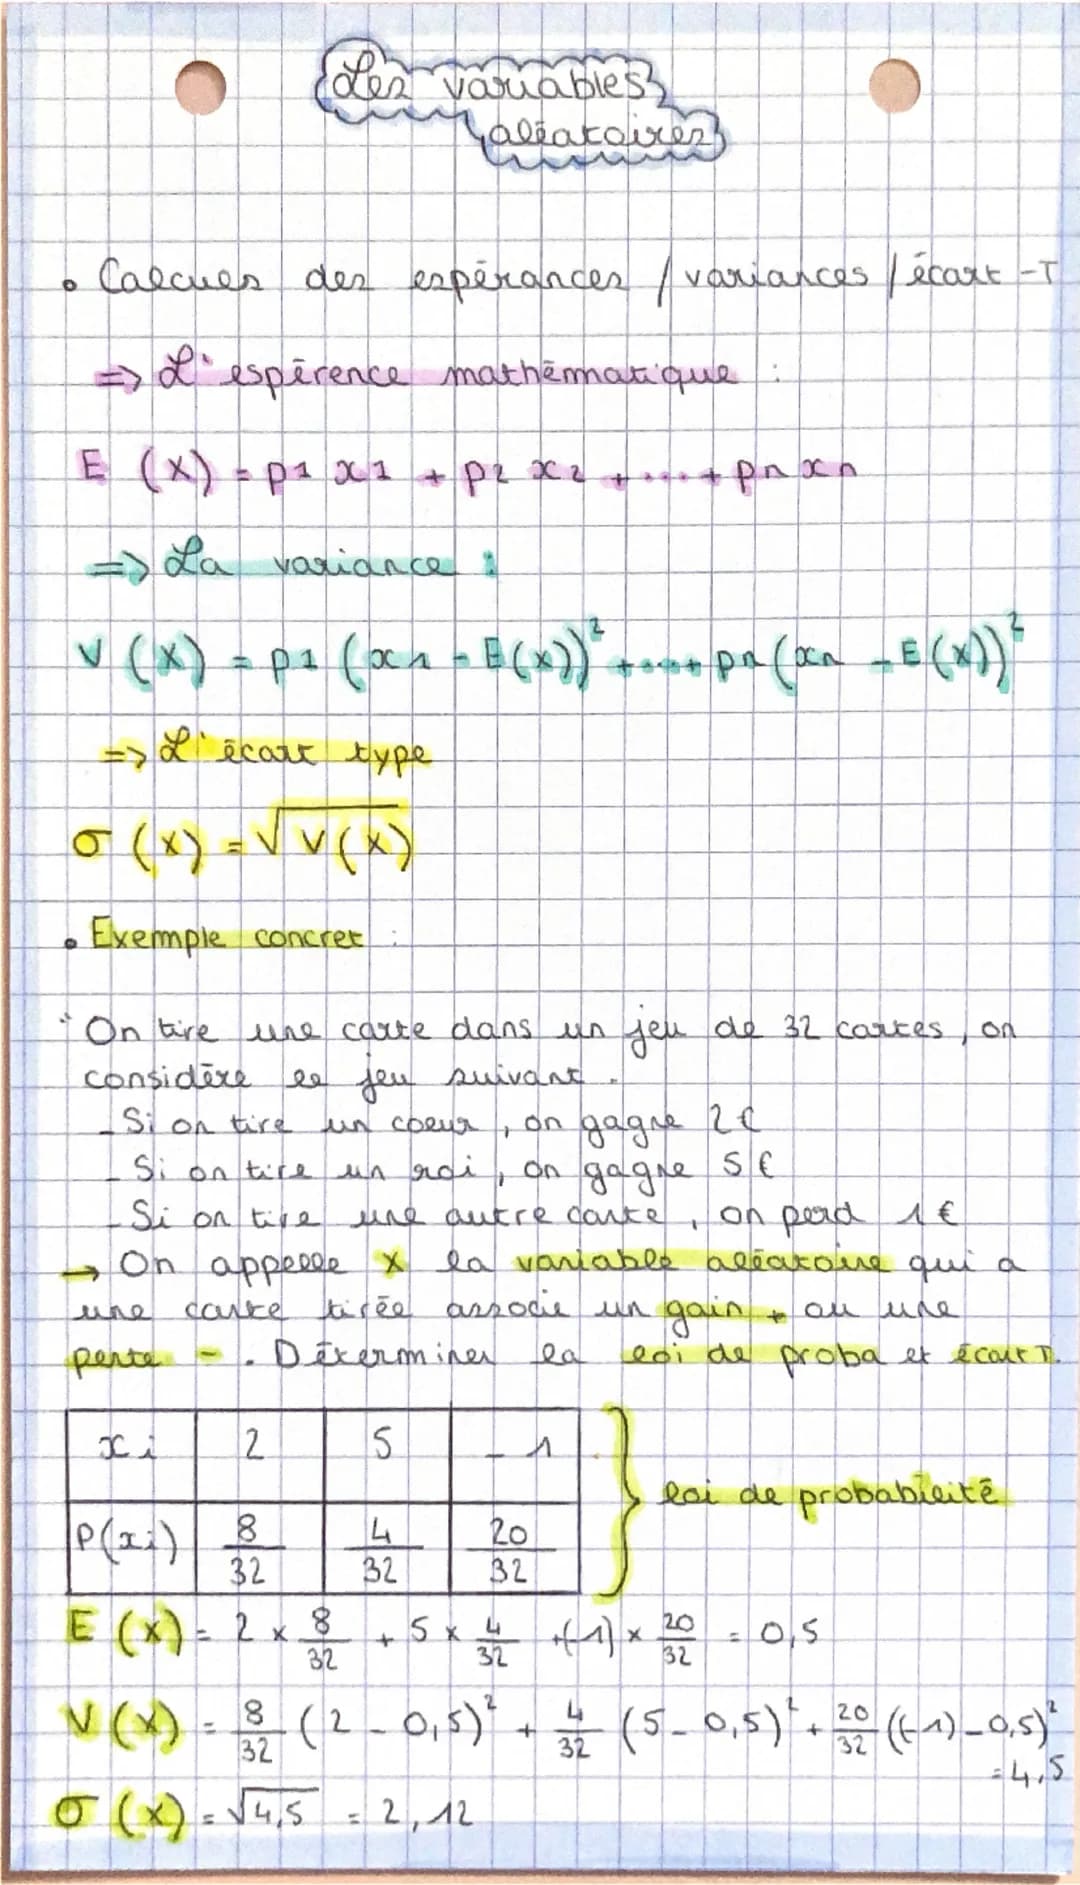 Les variables
aléatoires
• Calcues des espérances / variances / écart-T
=> L'espérence mathématique :
E (X) = p1 x1 + p2 x2 + .... + pn xn
=> La variance :
V (X) = p1 (x1 - E(x))² + .... + pn (xn - E(x))²
=> L'écart type
σ (x) = √V(x)
• Exemple concret :
" On tire une carte dans un jeu de 32 cartes, on
considère le jeu suivant.
- Si on tire un coeur, on gagne 2€
- Si on tire un roi, on gagne 5€
- Si on tire une autre carte, on perd 1€
→ On appelle X la variable aléatoire qui a
une carte tirée associe un gain + ou une
perte - . Déterminer la loi de proba et écart T.
xi 2 5 -1
P(xi) 8/32 4/32 20/32
loi de probabilité
E (x) = 2 x 8/32 + 5 x 4/32 + (-1) x 20/32 = 0,5
V (x) = 8/32 (2 - 0,5)² + 4/32 (5 - 0,5)² + 20/32 ((-1) - 0,5)²
= 4,5
σ (x) = √4,5 = 2,12